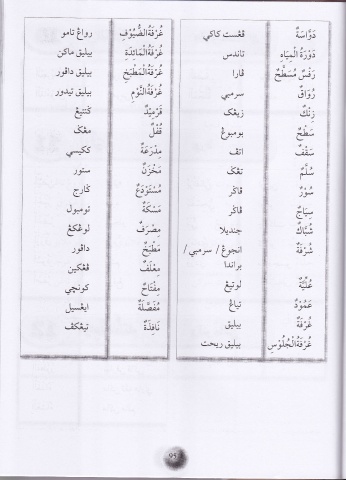 دَوَّاسَةٌ ڤڠست كاكي
دَوْرَةُ المِيَاهِ تاندس
رَفْسٌ مُسَطَّحٌ ڤارا
رُوَاقٌ سرمبي
زِنْكٌ زيڠك
سَطْحٌ بومبوڠ
سَقْفٌ اتڤ
سُلَّمٌ تڠݢ
سُوْرٌ ڤاݢر
سِيَاجٌ ڤاݢر
شُبَّاكٌ جنديلا
شُرْفَةٌ انجوڠ / سرمبي /
براندا
عُلِّيَّةٌ لوتيڠ
عَمُوْدٌ تياڠ
غُرْفَةٌ بيليق
غُرْفَةُ الجُلُوْسِ بيليق ريحت
غُرْفَةُ الضُّيُوْفِ رواڠ تامو
غُرْفَةُ المَائِدَةِ بيليق ماكن
غُرْفَةُ المَطْبَخِ بيليق داڤور
غُرْفَةُ النَّوْمِ بيليق تيدور
قَرْمِيْدٌ ݢنتيڠ
قُفْلٌ مڠݢ
مِدْرَعَةٌ ككيسي
مَخْزَنٌ ستور
مُسْتَوْدَعٌ ݢارج
مَسَكَةٌ تومبول
مِصْرَفٌ لوڠكڠ
مَطْبَخٌ داڤور
مِعْلَفٌ ڤڠكين
مِفْتَاحٌ كونچي
مُفَصَّلَةٌ ايڠسيل
نَافِذَةٌ تيڠكڤ